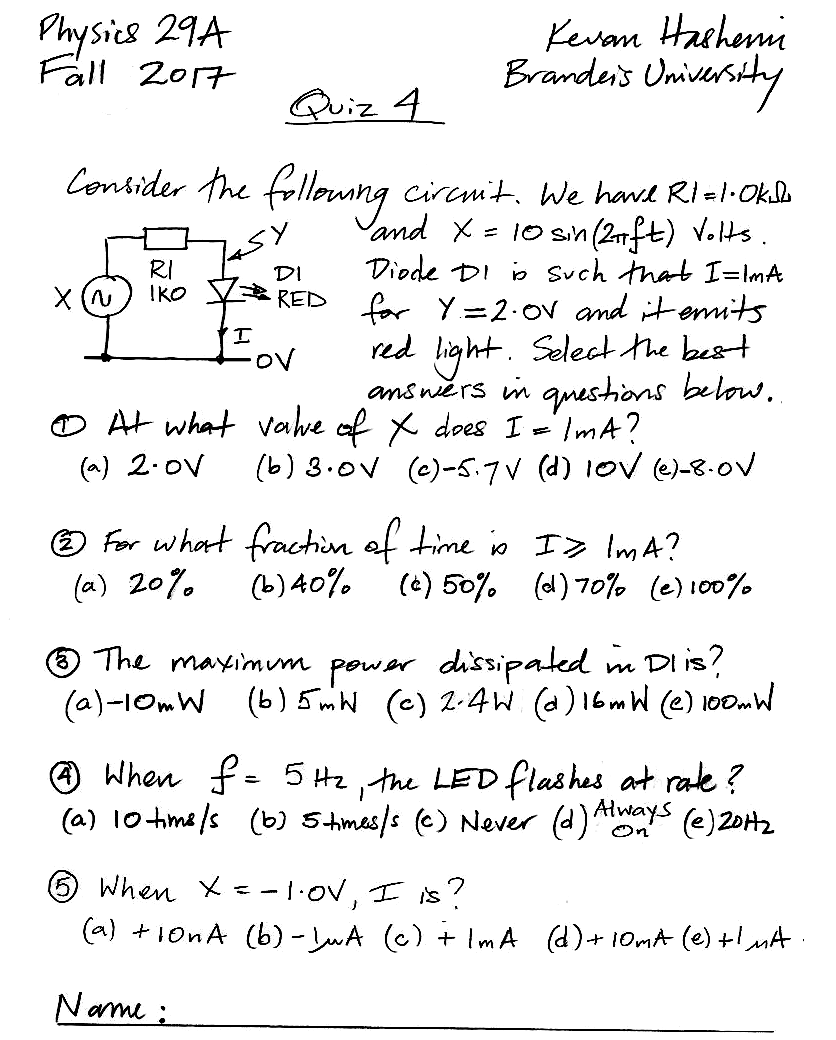 Physics 29A
Kevan Hashemi
Fall 2017
Brandeis University
Quiz 4
Consider the following circuit. We have R1=1.0kΩ
and X = 10 sin(2πft) Volts.
Diode D1 is such that I=1mA
for Y=2.0V and it emits
red light. Select the best
answers in questions below.
Y
R1
1K0
D1
RED
X
~
I
0V
① At what value of X does I = 1mA?
(a) 2.0V (b) 3.0V (c)-5.7V (d) 10V (e)-8.0V
② For what fraction of time is I ⩾ 1mA?
(a) 20% (b) 40% (c) 50% (d) 70% (e) 100%
③ The maximum power dissipated in D1 is?
(a)-10mW (b) 5mW (c) 2.4W (d) 16mW (e) 100mW
④ When f = 5Hz, the LED flashes at rate?
(a) 10 times/s (b) 5 times/s (c) Never (d) Always On (e) 20Hz
⑤ When X = -1.0V, I is?
(a) +10nA (b) -1μA (c) +1mA (d) +10mA (e) +1μA.
Name: